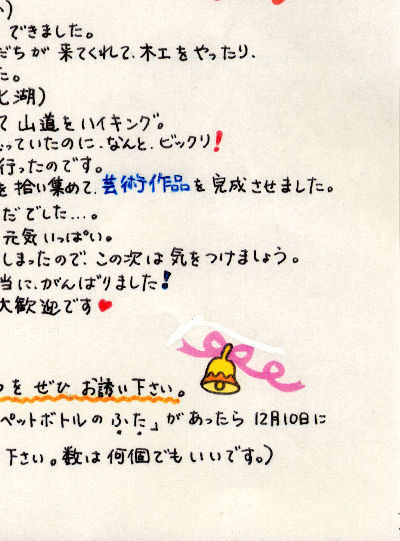 できました。
だちが来てくれて、木工をやったり、
た。
湖)
て山道をハイキング。
っていたのに、なんと、ビックリ!
行ったのです。
を拾い集めて、芸術作品を完成させました。
だでした...。
元気いっぱい。
しまったので、この次は気をつけましょう。
当に、がんばりました!
大歓迎です♥
をぜひお誘い下さい。
ペットボトルのふた」があったら12月10日に
下さい。数は何個でもいいです。)